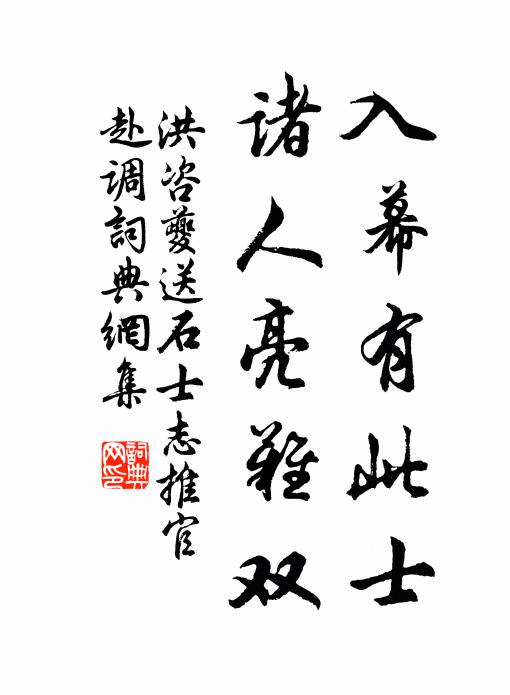 入幕有此士
诸人亮难双
洪咨夔送石士志推官
赴调詞典網集
詞典网印